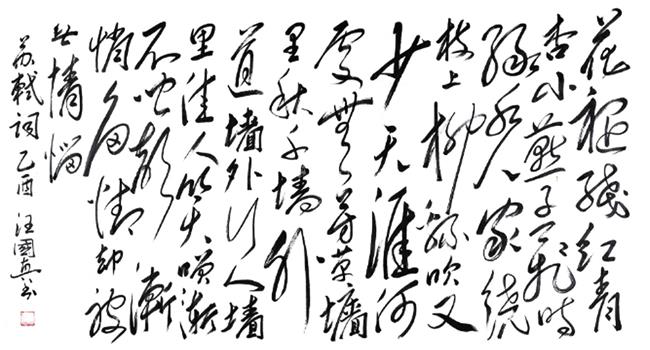 花褪残红青
杏小燕子飞时
绿水人家绕
枝上柳绵吹又
少天涯何
处无芳草墙
里秋千墙外
道墙外行人墙
里佳人笑笑渐
不闻声渐
悄多情却被
无情恼
苏轼词 乙酉 汪國真书